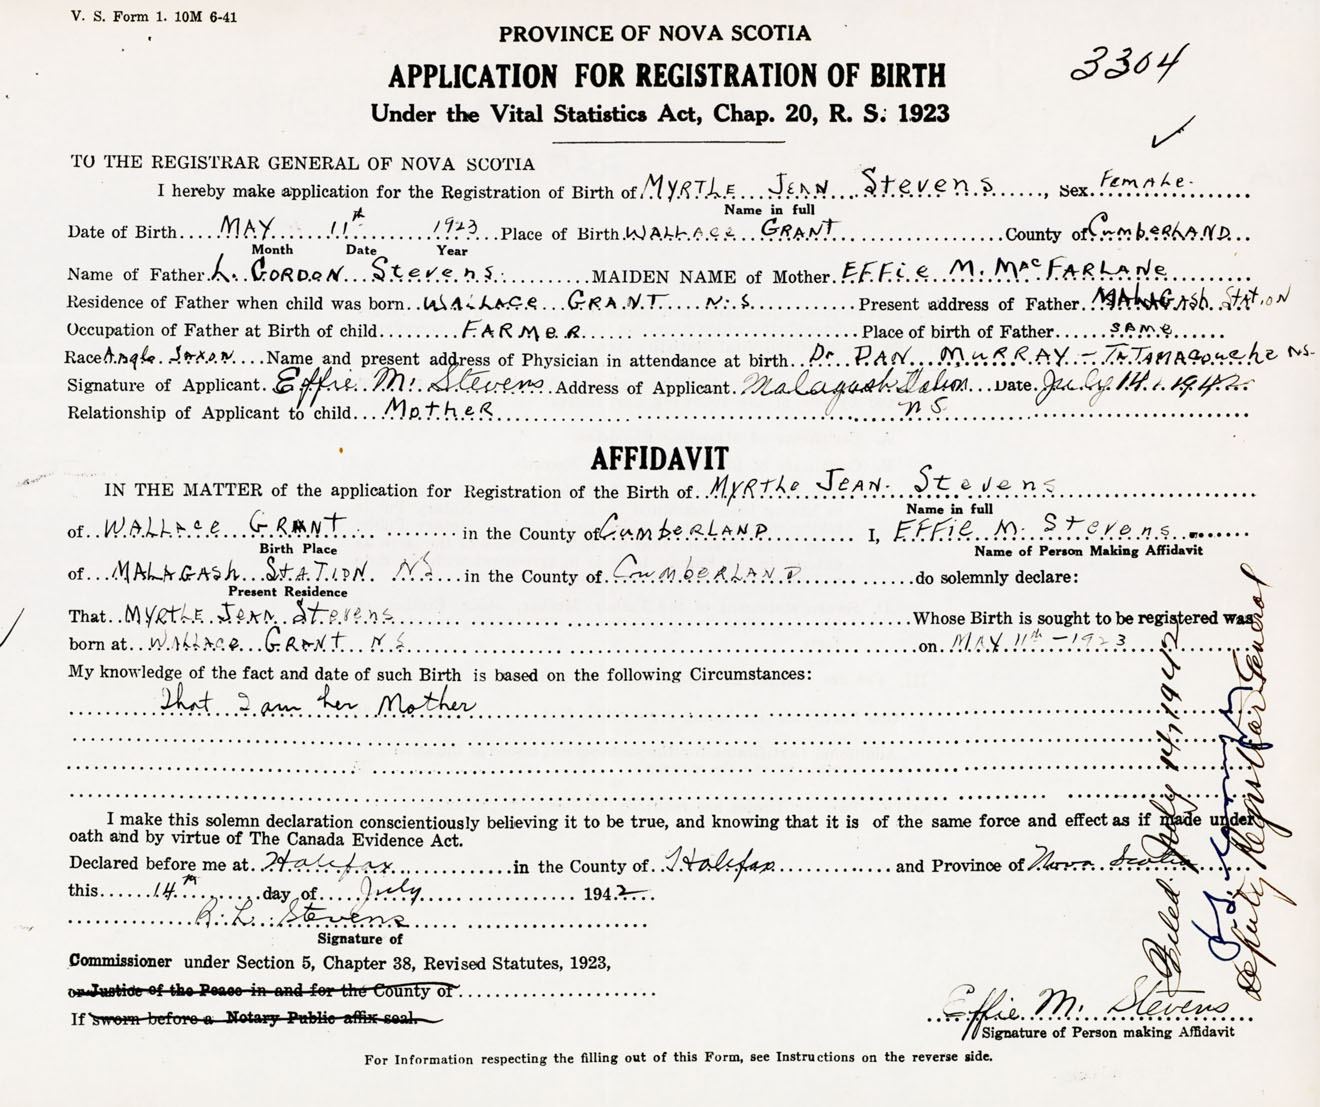 V. S. Form 1. 10M 6-41
PROVINCE OF NOVA SCOTIA
3304
APPLICATION FOR REGISTRATION OF BIRTH
Under the Vital Statistics Act, Chap. 20, R. S. 1923
TO THE REGISTRAR GENERAL OF NOVA SCOTIA
I hereby make application for the Registration of Birth of MYRTLE JEAN Stevens, Sex Female.
Name in full
Date of Birth MAY 11th 1923 Place of Birth WALLACE GRANT County of CumberLAND
Month Date Year
Name of Father L. GORDON Stevens MAIDEN NAME of Mother EFFie M. MacFARLANe
Residence of Father when child was born WALLACE GRANT N.S Present address of Father MALAGAsh StATiON
Occupation of Father at Birth of child FARMeR Place of birth of Father SAMe
Race Anglo Saxon Name and present address of Physician in attendance at birth Dr DAN MuRRAY - TATAMAGouche NS-
Signature of Applicant Effie M. Stevens Address of Applicant Malagash Station Date July 14, 1942
N S
Relationship of Applicant to child MotHeR
AFFIDAVIT
IN THE MATTER of the application for Registration of the Birth of MYRTLe JEAN Stevens
Name in full
of WALLAce GRANT in the County of CumbeRLAND I, EFFie M. Stevens
Birth Place Name of Person Making Affidavit
of MALAGAsh StATION NS in the County of CumbeRLAND do solemnly declare:
Present Residence
That MYRTLE JEAN Stevens Whose Birth is sought to be registered was
born at WALLACe GRANT N S on MAY 11th - 1923
My knowledge of the fact and date of such Birth is based on the following Circumstances:
That I am her Mother
I make this solemn declaration conscientiously believing it to be true, and knowing that it is of the same force and effect as if made under
oath and by virtue of The Canada Evidence Act.
Declared before me at Halifax in the County of Halifax and Province of Nova Scotia
this 14th day of July 1942
R. L. Stevens
Signature of
Commissioner under Section 5, Chapter 38, Revised Statutes, 1923,
or Justice of the Peace in and for the County of
If sworn before a Notary Public affix seal.
Effie M. Stevens
Signature of Person making Affidavit
For Information respecting the filling out of this Form, see Instructions on the reverse side.
Filed July 14, 1942
Deputy Registrar General